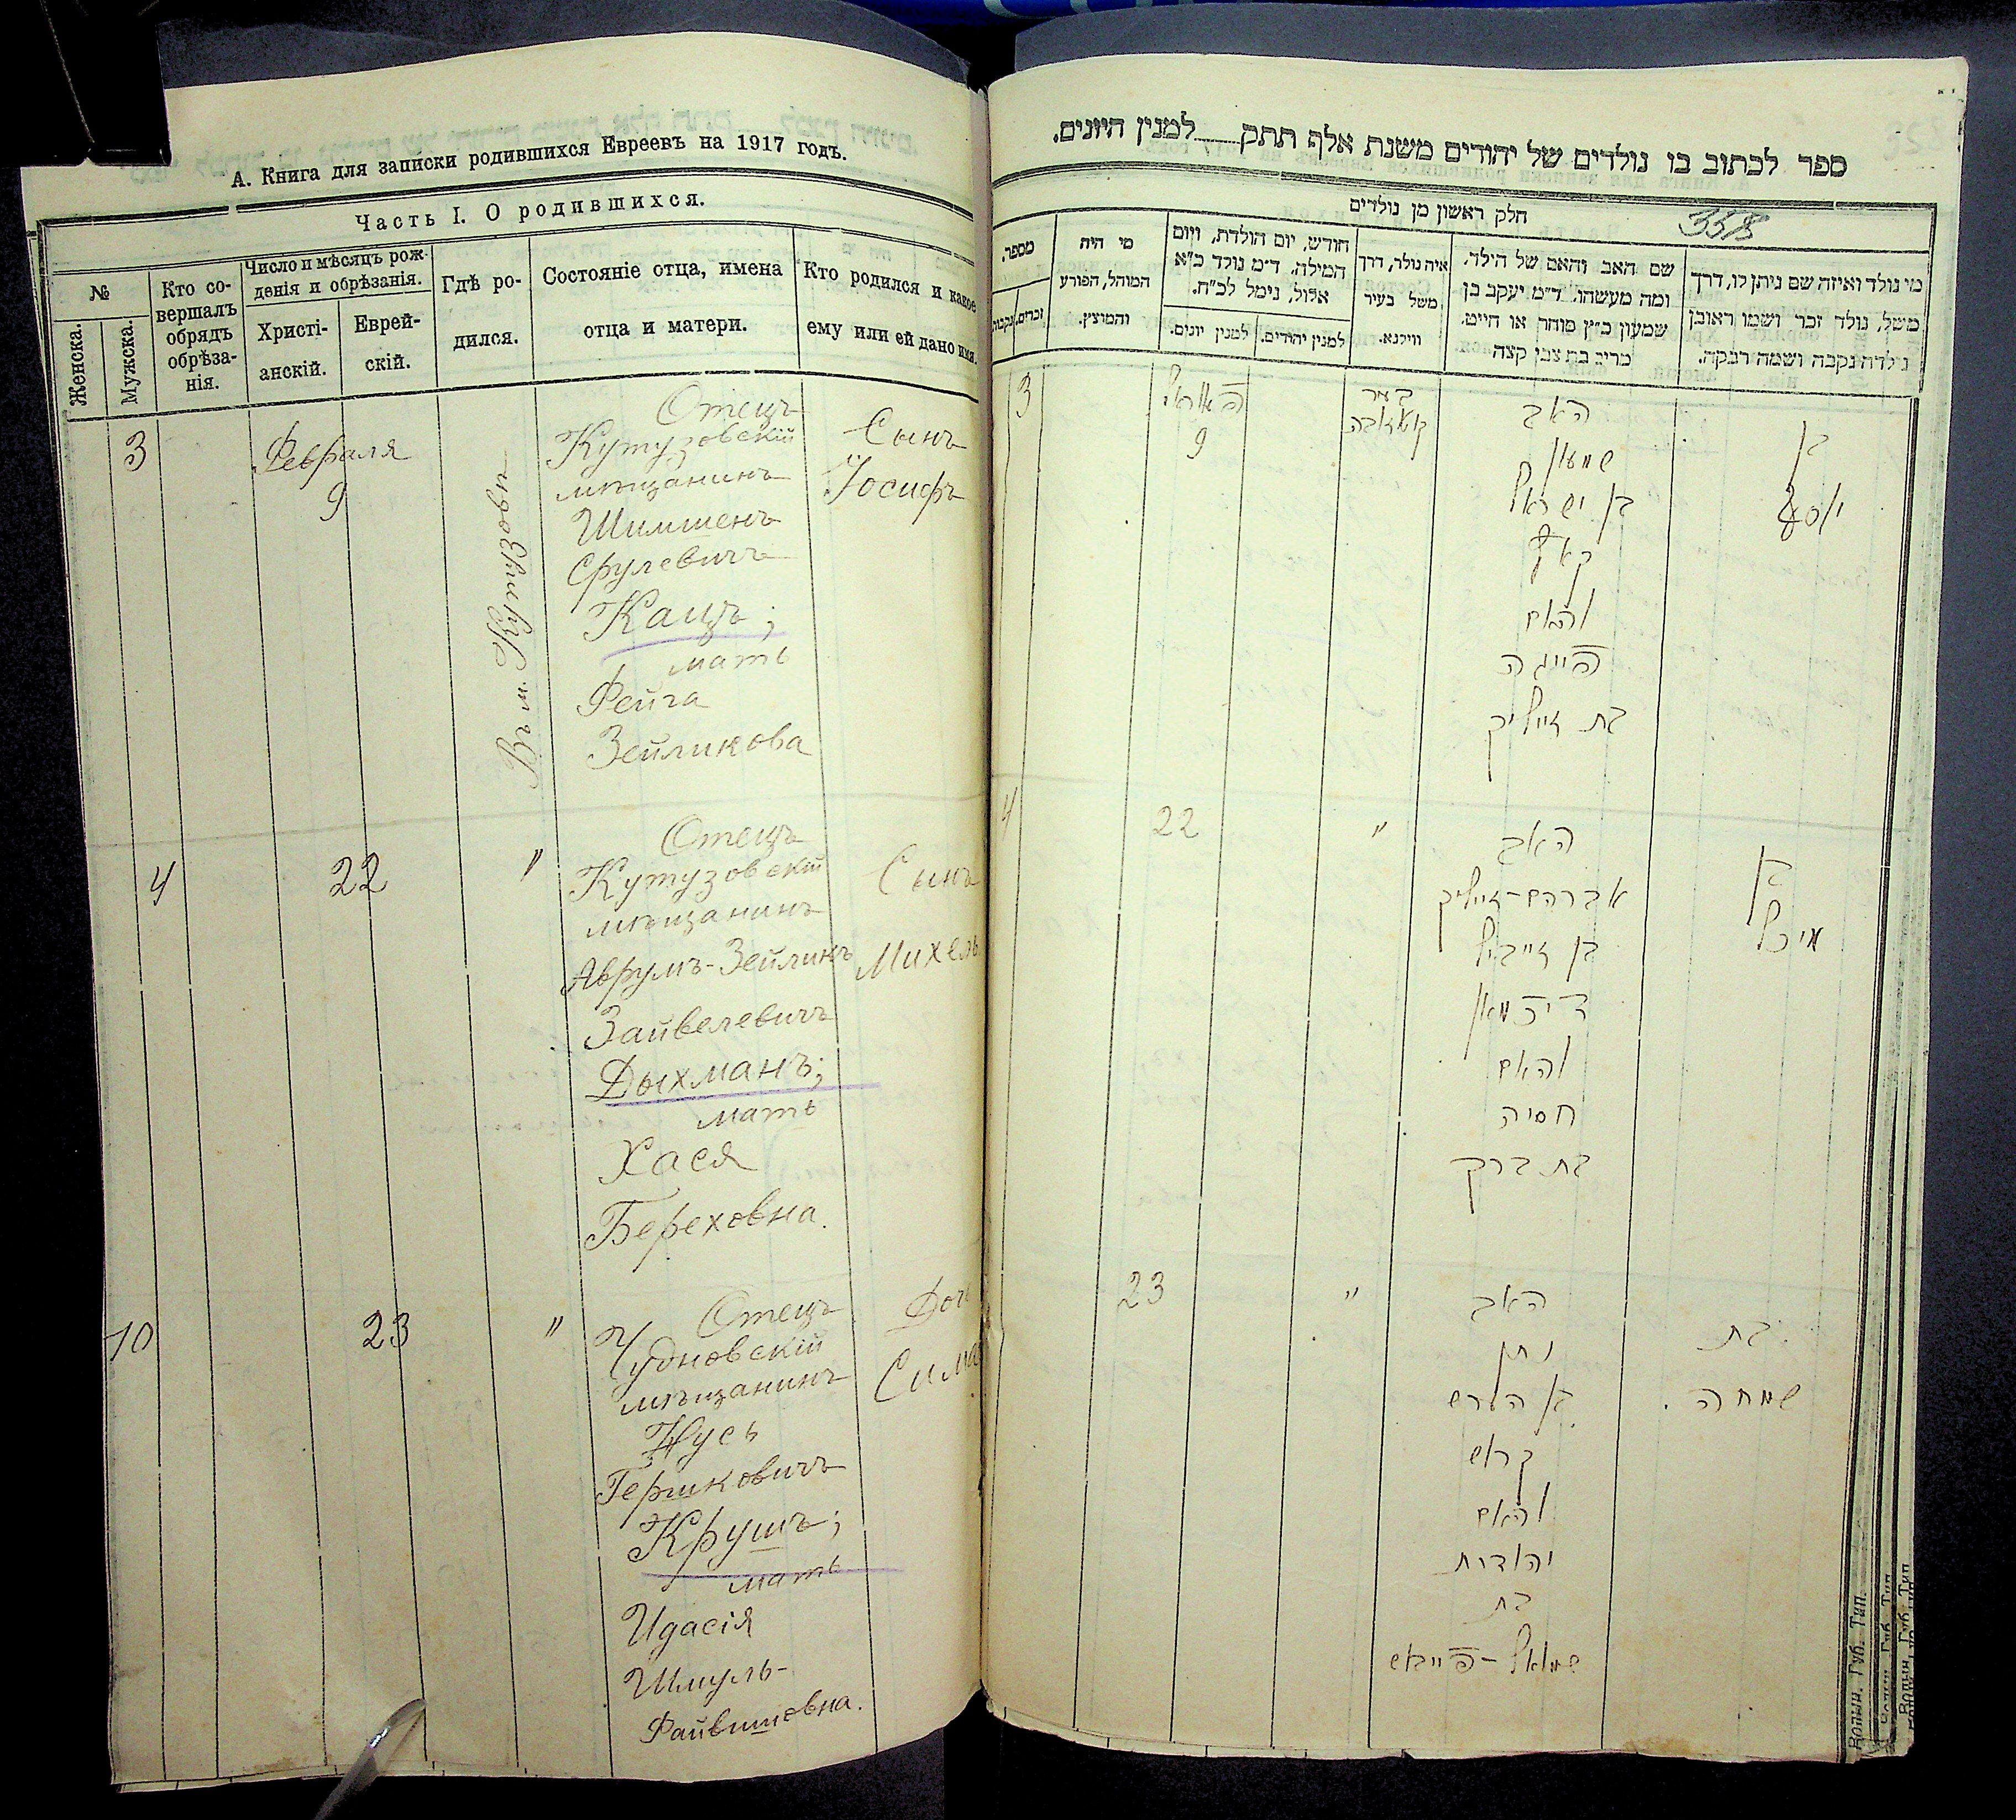 А. Книга для записки родившихся Евреевъ на 1917 годъ.
Часть I. О родившихся.
№
Женска.
Мужска.
Кто со-
вершалъ
обрядъ
обрѣза-
нія.
Число и мѣсяцъ рож-
денія и обрѣзанія.
Христі-
анскій.
Еврей-
скій.
Гдѣ ро-
дился.
Состояніе отца, имена
отца и матери.
Кто родился и какое
ему или ей дано имя.
3
Февраля
9
Отецъ
Кутузовскій
мѣщанинъ
Шимшенъ
Срулевичъ
Кацъ;
мать
Фейга
Зейликова
Сынъ
Іосифъ
4
22
"
Отецъ
Кутузовскій
мѣщанинъ
Аврумъ-Зейликъ
Зайвелевичъ
Дыхманъ;
мать
Хася
Береховна.
Сынъ
Михель
10
23
"
Отецъ
Чудновскій
мѣщанинъ
Нусь
Гершковичъ
Крушъ;
мать
Идасія
Шмуль-
Файвишовна.
Дочь
Сима
ספר לכתוב בו נולדים של יהודים משנת אלף תתק למנין היונים.
חלק ראשון מן נולדים
358
מספר.
זכרים.
נקבות
מי היה
המוהל, הפורע
והמוצץ.
חודש, יום הולדת, ויום
המילה. ד"מ נולד כ"א
אלול, נימל לכ"ח.
למנין יונים.
למנין יהודים.
איה נולד, דרך
משל בעיר
ווילנא.
שם האב והאם של הילד.
ומה מעשהו. ד"מ יעקב בן
שמעון כ"ץ סוחר או חייט.
מריב בת צבי קצה
מי נולד ואיזה שם ניתן לו, דרך
משל, נולד זכר ושמו ראובן
נולדה נקבה ושמה רבקה.
3
9
האב
שמעון
בן ישראל
והאם
פייגה
בת זייליק
בן
יוסף
4
22
"
האב
אברהם-זייליק
בן זייביל
דיכמאן
והאם
חסיה
בת ברק
בן
מיכל
23
"
האב
נתן
בן הירש
קרוש
והאם
יהודית
בת
שמואל-פייבוש
בת
שמחה
Волын. Губ. Тип.